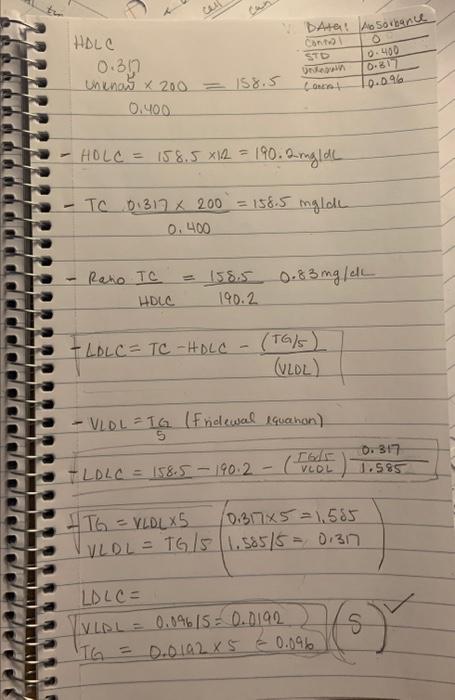 cell
can
Data: Absorbance
Control 0
STD 0.400
Unknown 0.317
Control 0.096
HDLC
0.317
Unknow × 200 = 158.5
0.400
- HDLC = 158.5 ×1.2 = 190.2 mg/dL
- TC 0.317 × 200 = 158.5 mg/dL
0.400
- Ratio TC = 158.5 0.83 mg/dL
HDLC 190.2
- LDLC = TC - HDLC - (TG/5)
(VLDL)
- VLDL = TG (Fridewal equation)
5
- LDLC = 158.5 - 190.2 - (TG/5 0.317
VLDL) 1.585
- TG = VLDL×5 (0.317×5 = 1.585
VLDL = TG/5 1.585/5 = 0.317)
LDLC =
VLDL = 0.096/5 = 0.0192 (5) ✓
TG = 0.0192 × 5 = 0.096